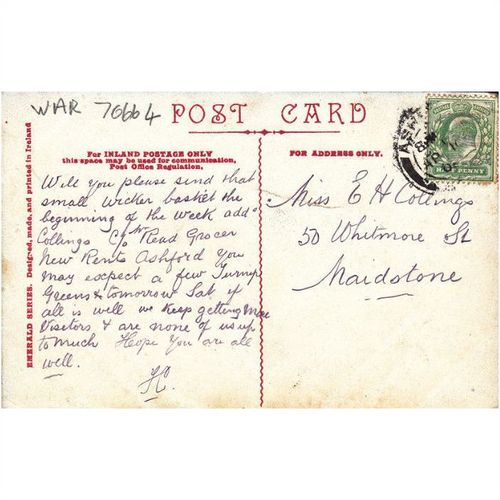 WAR 70664
POST CARD
For INLAND POSTAGE ONLY
this space may be used for communication,
Post Office Regulation.
FOR ADDRESS ONLY.
EMERALD SERIES. Designed, made, and printed in Ireland
Will you please send that
small wicker basket the
beginning of the week add
Collings C/o Read Grocer
New Rents Ashford You
may expect a few Turnip
Greens & tomorrow Sat if
all is well we keep getting more
Visitors & are none of us up
to much Hope you are all
well.
Miss E H Collings
50 Whitmore St
Maidstone
HALF PENNY